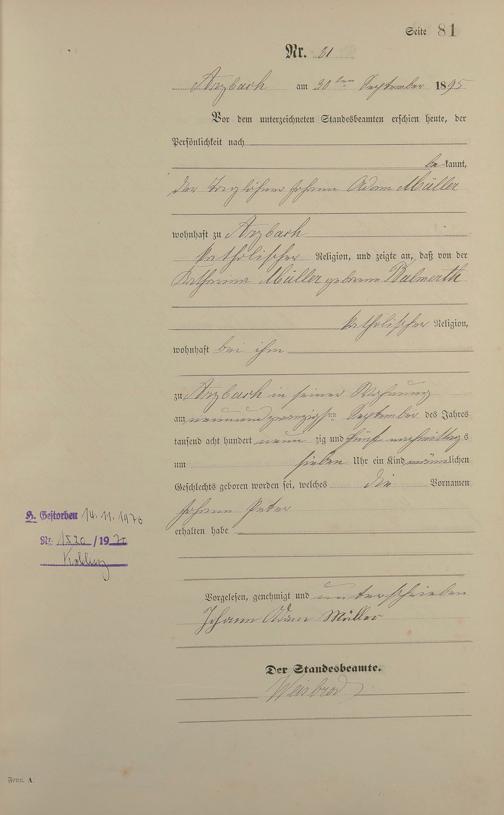 Seite 81
Nr. 81
Arzbach am 30ten September 1895
Vor dem unterzeichneten Standesbeamten erschien heute, der
Persönlichkeit nach
be kannt,
der Tagelöhner Johann Adam Müller
wohnhaft zu Arzbach
katholischer Religion, und zeigte an, daß von der
Katharina Müller geborene
katholischer Religion,
wohnhaft bei ihm
zu Arzbach in seiner Wohnung
am neunundzwanzigsten September des Jahres
tausend acht hundert neun zig und fünf nachmittags
um sieben Uhr ein Kind männlichen
Geschlechts geboren worden sei, welches die Vornamen
Johann Peter
erhalten habe
H. Gestorben 14.11.1970
Nr. 1520/1970
Koblenz
Vorgelesen, genehmigt und unterschrieben
Johann Adam Müller
Der Standesbeamte.
Weisbrod
Form. A.